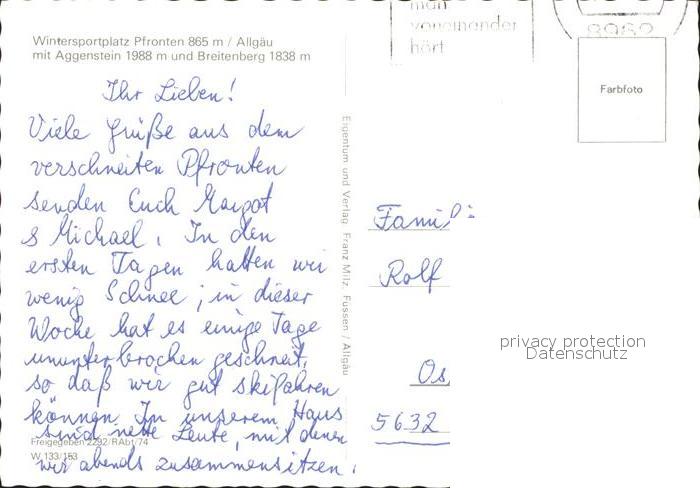 man
voneinander
hört
8962
Farbfoto
Wintersportplatz Pfronten 865 m / Allgäu
mit Aggenstein 1988 m und Breitenberg 1838 m
Ihr Lieben!
Viele Grüße aus dem
verschneiten Pfronten
senden Euch Margot
& Michael. In den
ersten Tagen hatten wir
wenig Schnee; in dieser
Woche hat es einige Tage
ununterbrochen geschneit,
so daß wir gut skifahren
können. In unserem Haus
sind nette Leute, mit denen
wir abends zusammensitzen.
Freigegeben 2292/RAbt/74
W 133/153
Eigentum und Verlag Franz Milz, Füssen / Allgäu
Famil
Rolf
Os
5632
privacy protection
Datenschutz